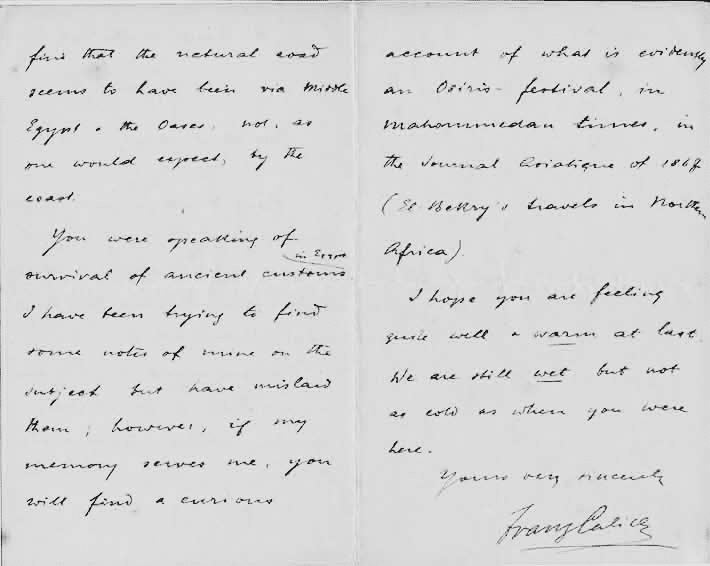 find that the natural road
seems to have been via Middle
Egypt & the Oases, not, as
one would expect, by the
coast.
You were speaking of
in Egypt
survival of ancient customs.
I have been trying to find
some notes of mine on the
subject but have mislaid
them; however, if my
memory serves me, you
will find a curious
account of what is evidently
an Osiris-festival, in
Mahommedan times, in
the Journal Asiatique of
(El Bekry's travels in Northern
Africa).
I hope you are feeling
quite well & warm at last.
We are still wet but not
as cold as when you were
here.
Yours very sincerely
Franz Calice